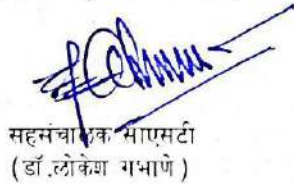 सहसंचालक सीएसटी
(डॉ.लोकेश गभाणे)